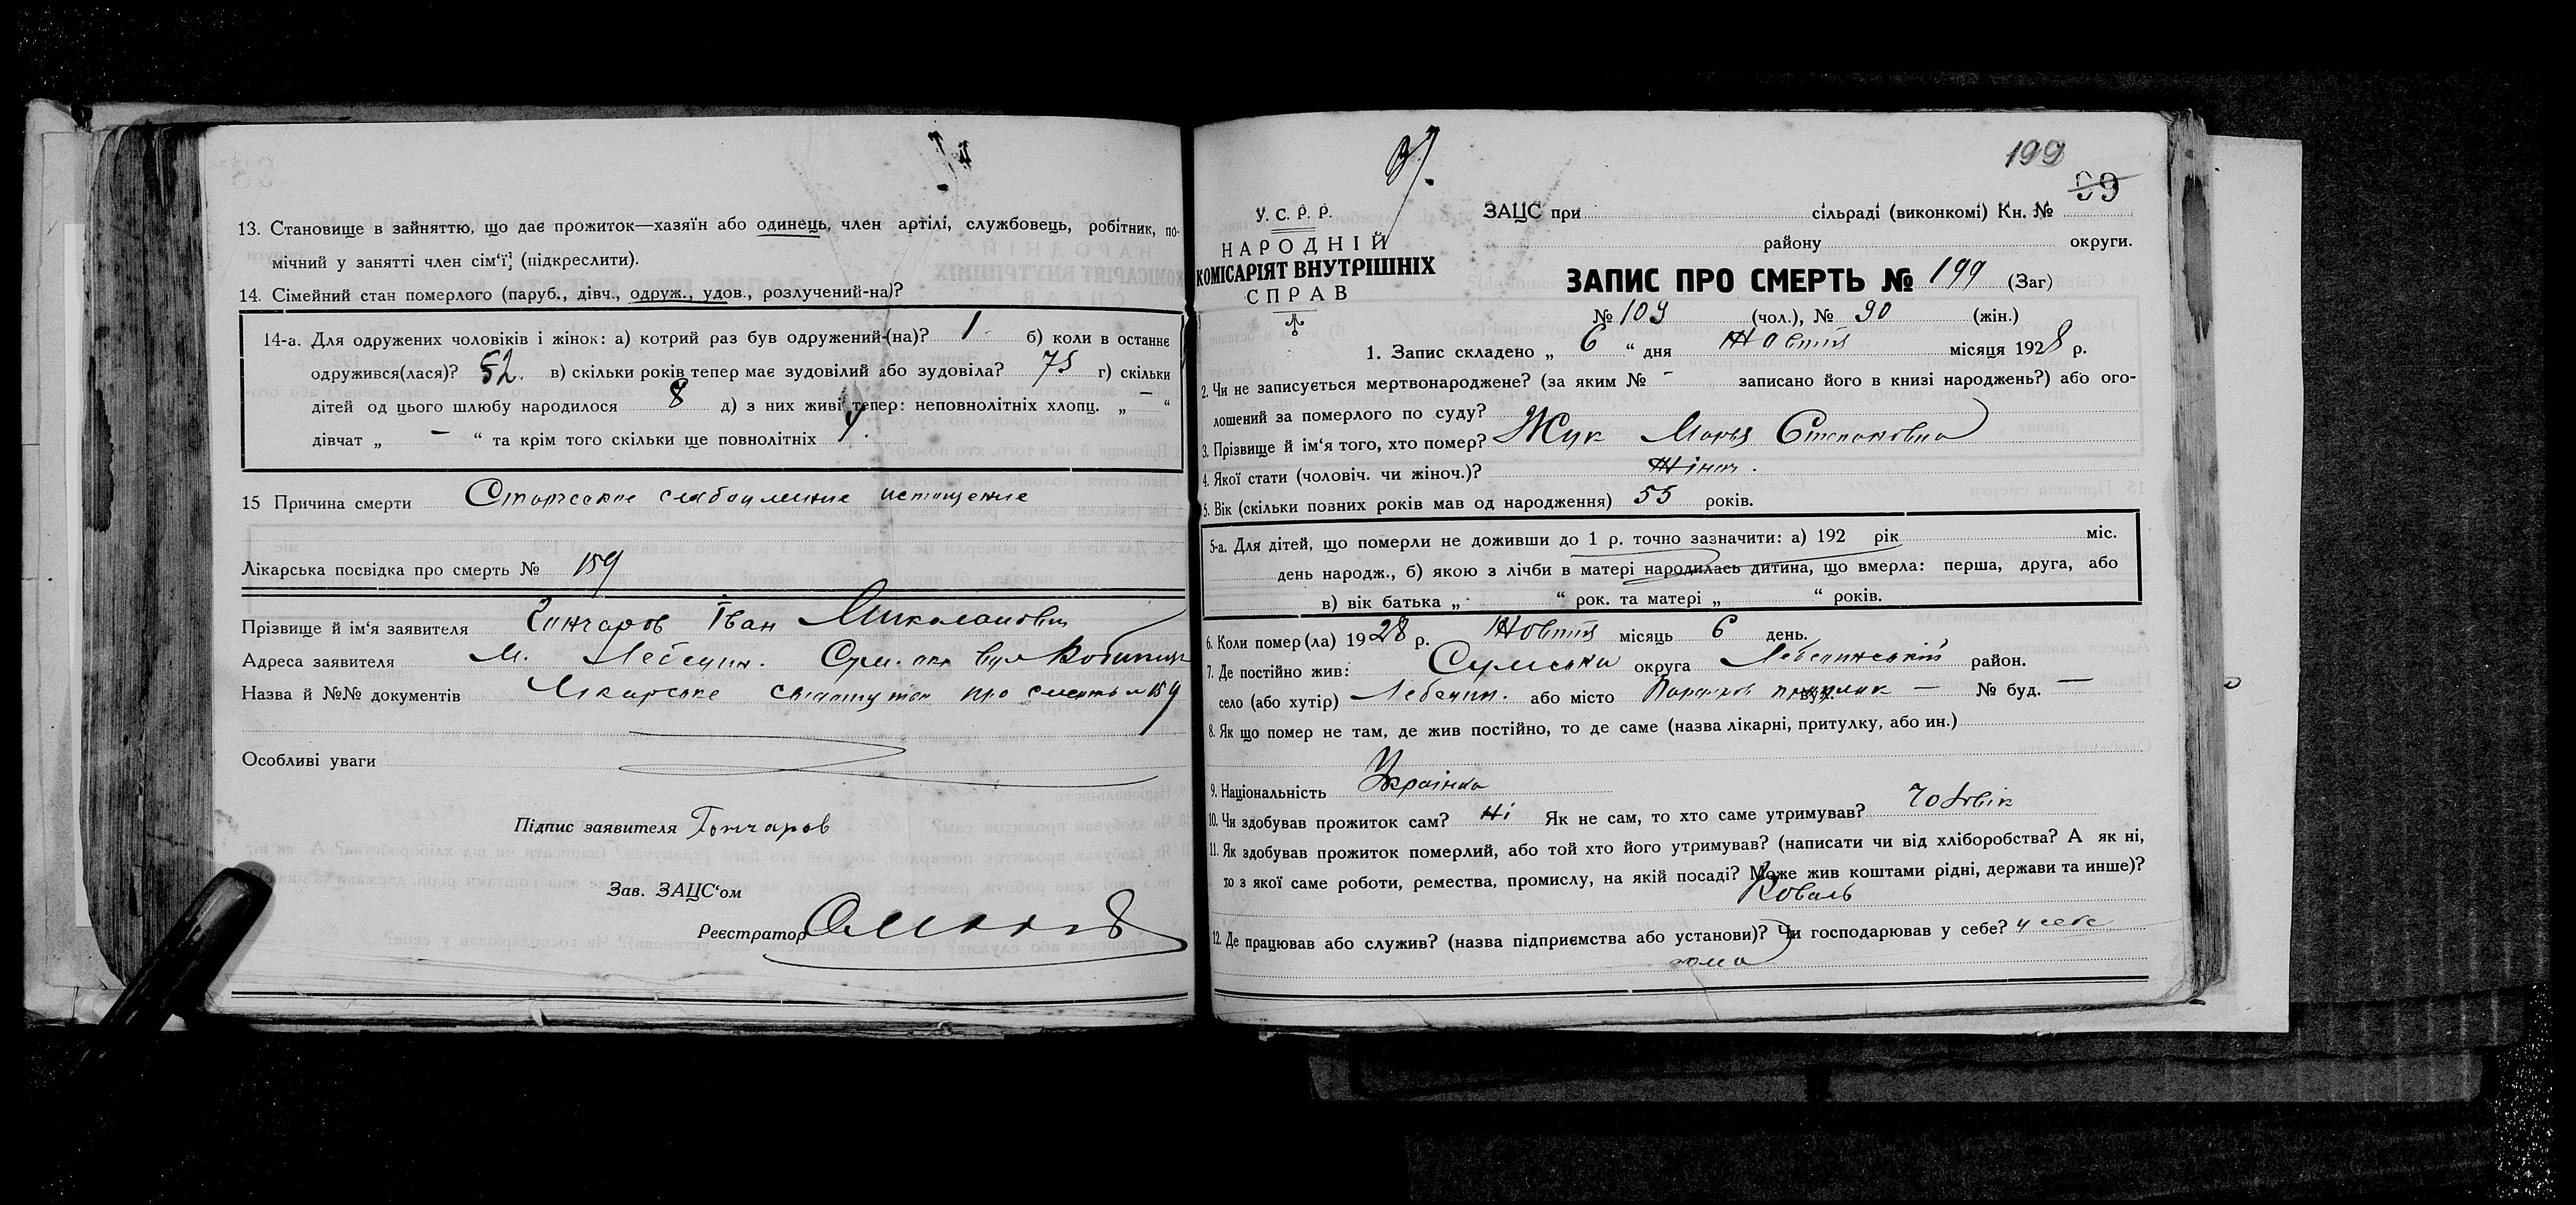 13. Становище в зайняттю, що дає прожиток—хазяїн або одинець, член артілі, службовець, робітник, по-
мічний у занятті член сім'ї, (підкреслити).
14. Сімейний стан померлого (паруб., дівч., одруж., удов., розлучений-на)?
14-а. Для одружених чоловіків і жінок: а) котрий раз був одружений-(на)? 1 б) коли в останнє
одружився(лася)? 52. в) скільки років тепер має зудовілий або зудовіла? 75 г) скільки
дітей од цього шлюбу народилося 8 д) з них живі тепер: неповнолітніх хлопц. „ — “
дівчат „ — “ та крім того скільки ще повнолітніх 4.
15 Причина смерти Старческое слабоумение истощение
Лікарська посвідка про смерть № 159
Прізвище й ім'я заявителя Гончаров Іван Миколайович
Адреса заявителя М. Лебедин. Сум. окр вул
Назва й №№ документів Лікарське про смерть № 159
Особливі уваги
Підпис заявителя Гончаров
Зав. ЗАЦС'ом
Реєстратор
199
99
У. С. Р. Р.
НАРОДНІЙ
КОМІСАРІЯТ ВНУТРІШНІХ
СПРАВ
ЗАЦС при сільраді (виконкомі) Кн. №
району округи.
ЗАПИС ПРО СМЕРТЬ № 199 (Заг)
№ 109 (чол.), № 90 (жін.)
1. Запис складено „ 6 “ дня Жовтня місяця 1928 р.
2. Чи не записується мертвонароджене? (за яким № - записано його в книзі народжень?) або ого-
лошений за померлого по суду?
3. Прізвище й ім'я того, хто помер? Жук Марья Степановна
4. Якої стати (чоловіч. чи жіноч.)? Жіноч.
5. Вік (скільки повних років мав од народження) 55 років.
5-а. Для дітей, що померли не доживши до 1 р. точно зазначити: а) 192 рік міс.
день народж., б) якою з лічби в матері народилась дитина, що вмерла: перша, друга, або
в) вік батька „ “ рок. та матері „ “ років.
6. Коли помер(ла) 1928 р. Жовтня місяць 6 день.
7. Де постійно жив: Сумська округа Лебединський район.
село (або хутір) Лебедин. або місто вул. — № буд. —
8. Як що помер не там, де жив постійно, то де саме (назва лікарні, притулку, або ин.)
9. Національність Українка
10. Чи здобував прожиток сам? Ні Як не сам, то хто саме утримував? Чоловік
11. Як здобував прожиток померлий, або той хто його утримував? (написати чи від хліборобства? А як ні,
то з якої саме роботи, ремества, промислу, на якій посаді? Може жив коштами рідні, держави та инше)?
Коваль
12. Де працював або служив? (назва підприємства або установи)? Чи господарював у себе? у себе
дома